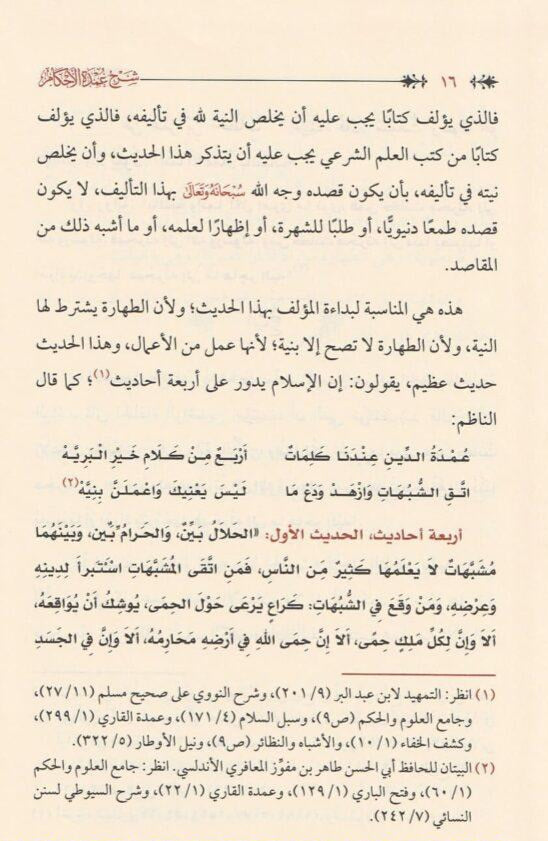 ١٦ شرح عمدة الأحكام
فالذي يؤلف كتابًا يجب عليه أن يخلص النية لله في تأليفه، فالذي يؤلف
كتابًا من كتب العلم الشرعي يجب عليه أن يتذكر هذا الحديث، وأن يخلص
نيته في تأليفه، بأن يكون قصده وجه الله سُبْحَانَهُ وَتَعَالَى بهذا التأليف، لا يكون
قصده طمعًا دنيويًّا، أو طلبًا للشهرة، أو إظهارًا لعلمه، أو ما أشبه ذلك من
المقاصد.
هذه هي المناسبة لبداءة المؤلف بهذا الحديث؛ ولأن الطهارة يشترط لها
النية، ولأن الطهارة لا تصح إلا بنية؛ لأنها عمل من الأعمال، وهذا الحديث
حديث عظيم، يقولون: إن الإسلام يدور على أربعة أحاديث(١)؛ كما قال
الناظم:
عُمْدَةُ الدِّينِ عِنْدَنَا كَلِمَاتٌ أَرْبَعٌ مِنْ كَلَامِ خَيْرِ الْبَرِيَّهْ
اتَّقِ الشُّبُهَاتِ وَازْهَدْ وَدَعْ مَا لَيْسَ يَعْنِيكَ وَاعْمَلَنَّ بِنِيَّهْ(٢)
أربعة أحاديث، الحديث الأول: «الحَلَالُ بَيِّنٌ، وَالحَرَامُ بَيِّنٌ، وَبَيْنَهُمَا
مُشَبَّهَاتٌ لَا يَعْلَمُهَا كَثِيرٌ مِنَ النَّاسِ، فَمَنِ اتَّقَى المُشَبَّهَاتِ اسْتَبْرَأَ لِدِينِهِ
وَعِرْضِهِ، وَمَنْ وَقَعَ فِي الشُّبُهَاتِ: كَرَاعٍ يَرْعَى حَوْلَ الحِمَى، يُوشِكُ أَنْ يُوَاقِعَهُ،
أَلَا وَإِنَّ لِكُلِّ مَلِكٍ حِمًى، أَلَا إِنَّ حِمَى اللهِ فِي أَرْضِهِ مَحَارِمُهُ، أَلَا وَإِنَّ فِي الجَسَدِ
(١) انظر: التمهيد لابن عبد البر (٢٠١/٩)، وشرح النووي على صحيح مسلم (٢٧/١١)،
وجامع العلوم والحكم (ص٩)، وسبل السلام (١٧١/٤)، وعمدة القاري (٢٩٩/١)،
وكشف الخفاء (١٠/١)، والأشباه والنظائر (ص٩)، ونيل الأوطار (٣٢٢/٥).
(٢) البيتان للحافظ أبي الحسن طاهر بن مفوِّز المعافري الأندلسي. انظر: جامع العلوم والحكم
(٦٠/١)، وفتح الباري (١٢٩/١)، وعمدة القاري (٢٢/١)، وشرح السيوطي لسنن
النسائي (٢٤٢/٧).